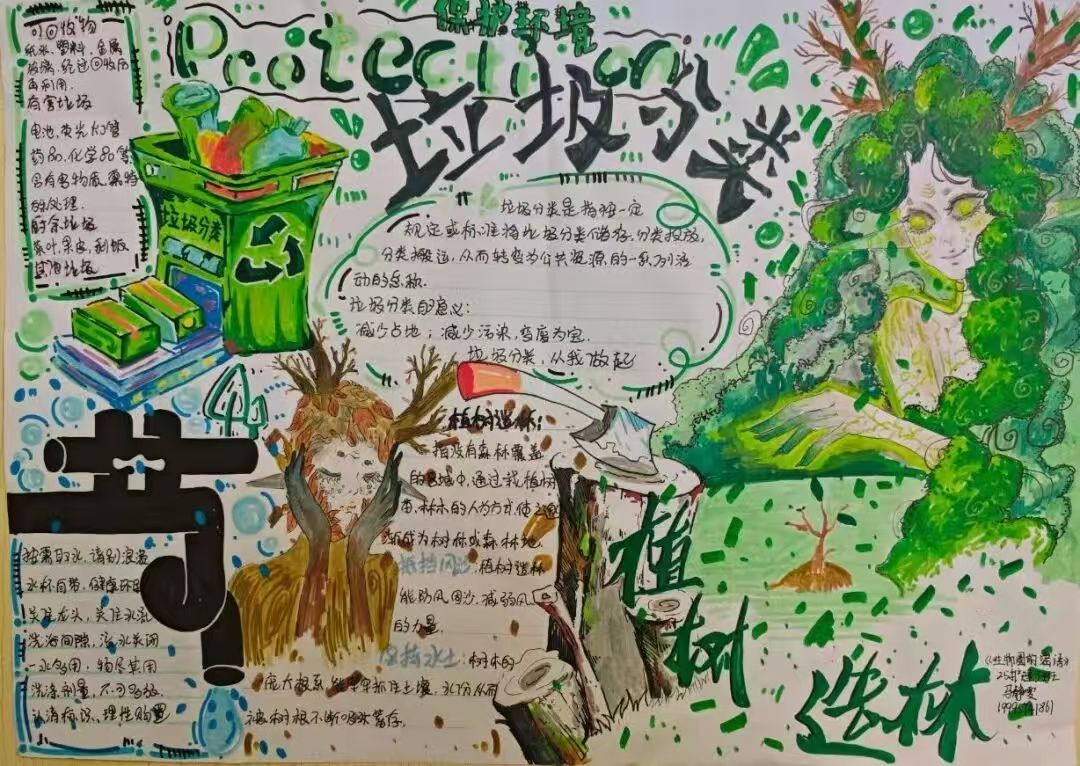 保护环境
Protection
垃圾分类
可回收物
纸张、塑料、金属
玻璃,经过回收后
再利用.
有害垃圾
电池,荧光灯管
药品,化学品等
含有害物质、需特
殊处理.
厨余垃圾
茶叶、果皮,剩饭
垃圾分类
垃圾分类是指按一定
规定或标准将垃圾分类储存,分类投放,
分类搬运,从而转变为公共资源的一系列活
动的总称.
垃圾分类的意义:
减少占地;减少污染,变废为宝.
垃圾分类,从我做起
植树造林:
指没有森林覆盖
的区域中,通过栽植树
木、林木的人为方式,使之逐
渐成为树林或森林地.
抵挡风沙:植树造林
能防风固沙,减弱风
的力量.
保持水土:树木的
庞大根系,能牢牢抓住土壤,水分从而
被树根不断吸收蓄存.
节
按需取水,请别浪费
水杯自带,健康环保
关注龙头,关注水流
洗浴间隙,浴水关闭
一水多用,物尽其用
洗涤剂量,不可多放
认清标识,理性购置
植树
造林